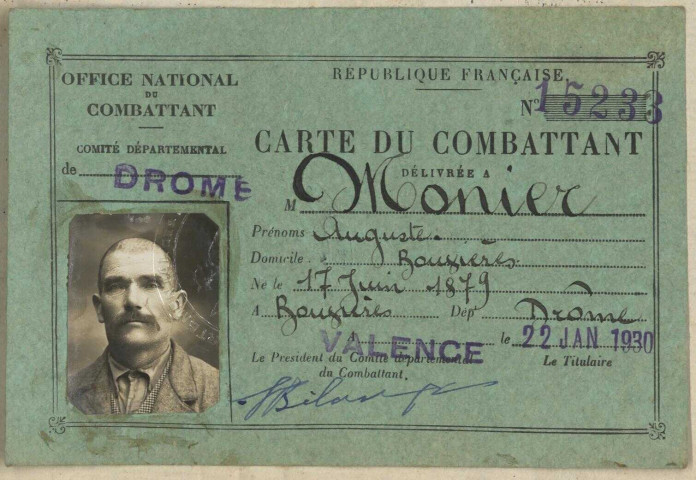 OFFICE NATIONAL
DU
COMBATTANT
COMITÉ DÉPARTEMENTAL
de DROME
RÉPUBLIQUE FRANÇAISE
No 15233
CARTE DU COMBATTANT
DÉLIVRÉE A
M Monier
Prénoms Auguste.
Domicile :
Né le 17 Juin 1879
A Dépt Drôme
VALENCE le 22 JAN 1930
Le Président du Comité départemental
du Combattant,
Le Titulaire